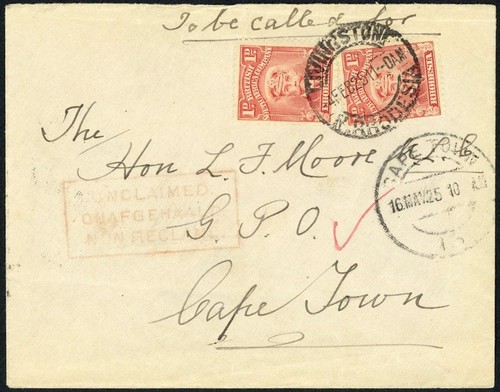 To be called for
1D BRITISH 1D
SOUTH AFRICA COMPANY
RHODESIA
LIVINGSTONE
N. RHODESIA
The
Hon L. F. Moore
G. P. O.
Cape Town
UNCLAIMED.
ONAFGEHAALD
NON RECLAMÉ.
CAPE TOWN
16 MAY 25 10 AM